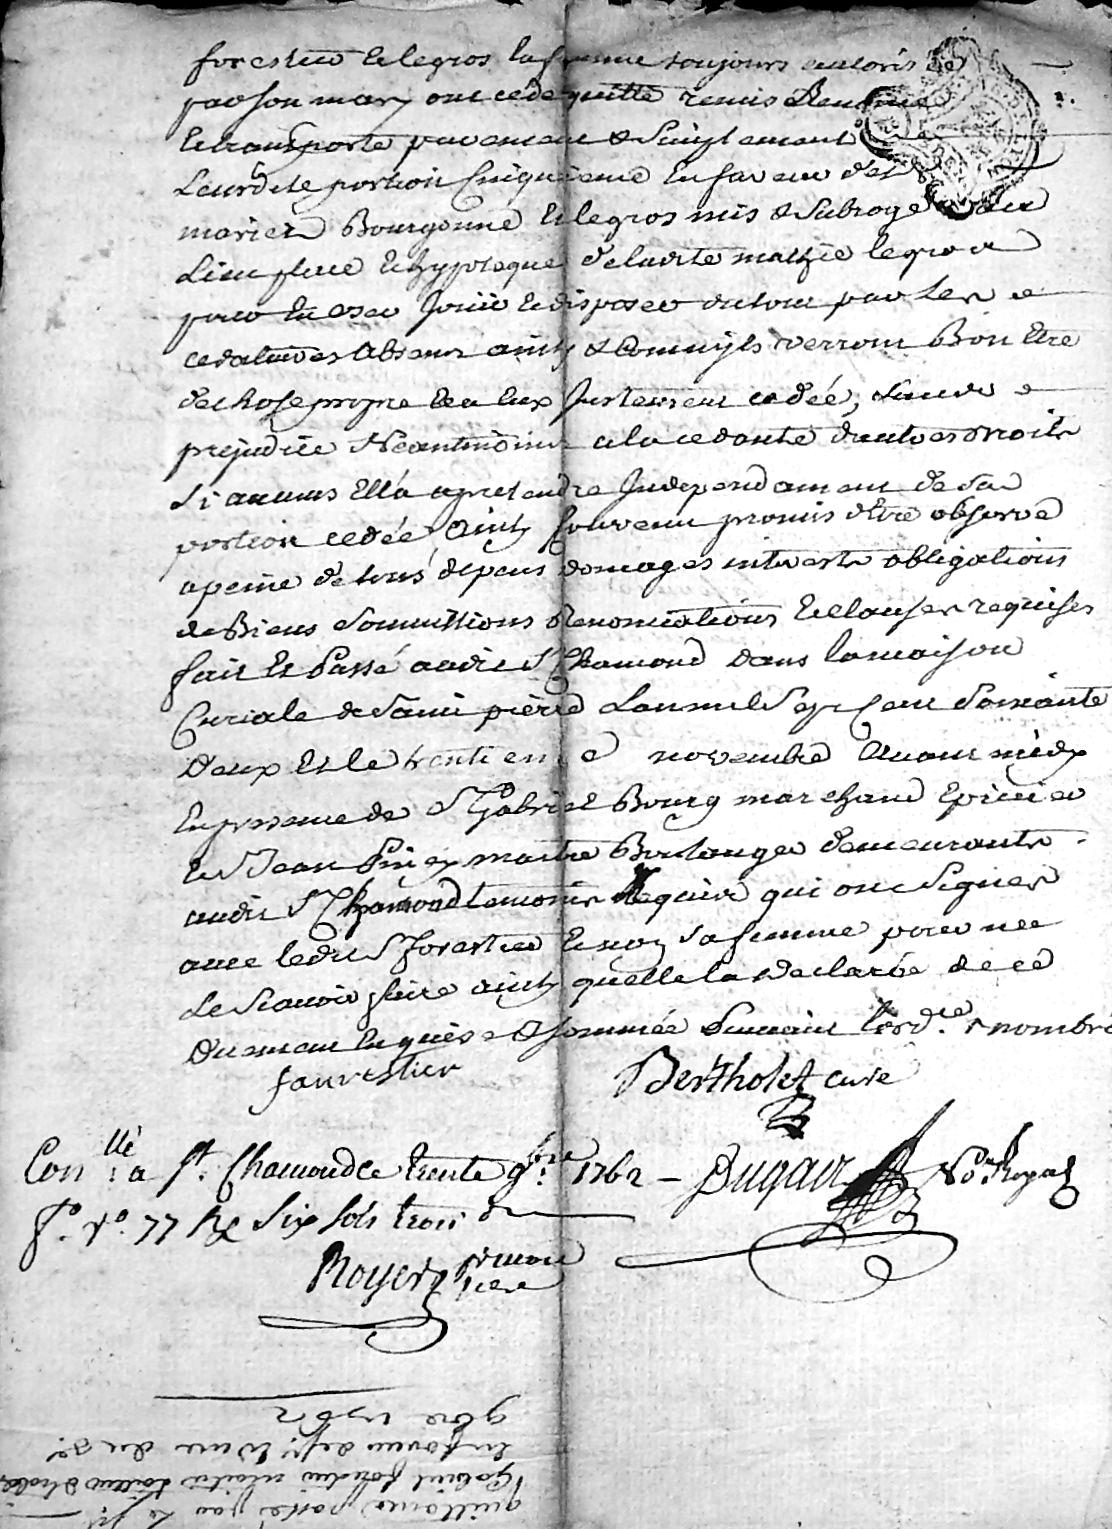 forestier et legros sa femme toujours autorisée
par son mary ont cédé quitté remis
et transporté purement & simplement
leurdite portion cinquieme en faveur des
mariez Bourgonne et legros mis & subrogé
lieu place et hypoteque de ladite mathie legros
pour en user jouir et disposer du tout par les
cedataires absens ainsy & comm'ils verront bon etre
de chose propre et a eux justement cedée, sans
prejudice neantmoins a la cedante d'autres droits
si aucuns ell'a a pretendre independament de sa
portion cedée ainsy convenu promis d'etre observé
a peine de tous depens domages interests obligations
de biens soumissions renonciations et clauses requises
fait et passé audit St Chamond dans la maison
curiale de saint pierre l'an mil sept cent soixante
deux et le trentieme novembre avant midy
en presence de Sr Gabriel Bourg marchand epicier
et Sr Jean maitre Boulanger demeurants
audit St Chamond temoins requis qui ont signés
avec ledit Sr forestier et non sa femme pour ne
le scavoir faire ainsy quelle la declarée de ce
duement enquise & sommée suivant l'ordce & nombre
faurestier
Bertholet curé
Conllé a St. Chamond ce trente 9bre 1762 - Dugair No.re Royal
fo. vo. 77 Rx six sols trois d
Royer
9bre 1762
en faveur de
Gabriel
quittance passé par le Sr